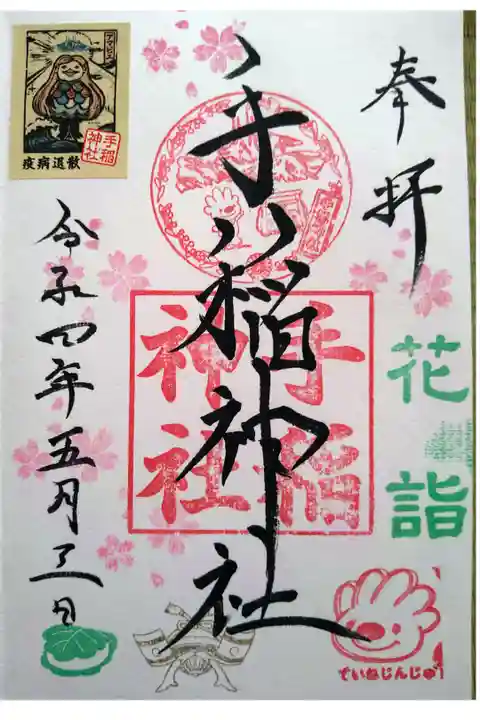 奉拝
花詣
手稲神社
手稲
神社
令和四年五月三日
アマビエ
疫病退散
手稲
神社
ていねじんじゃ